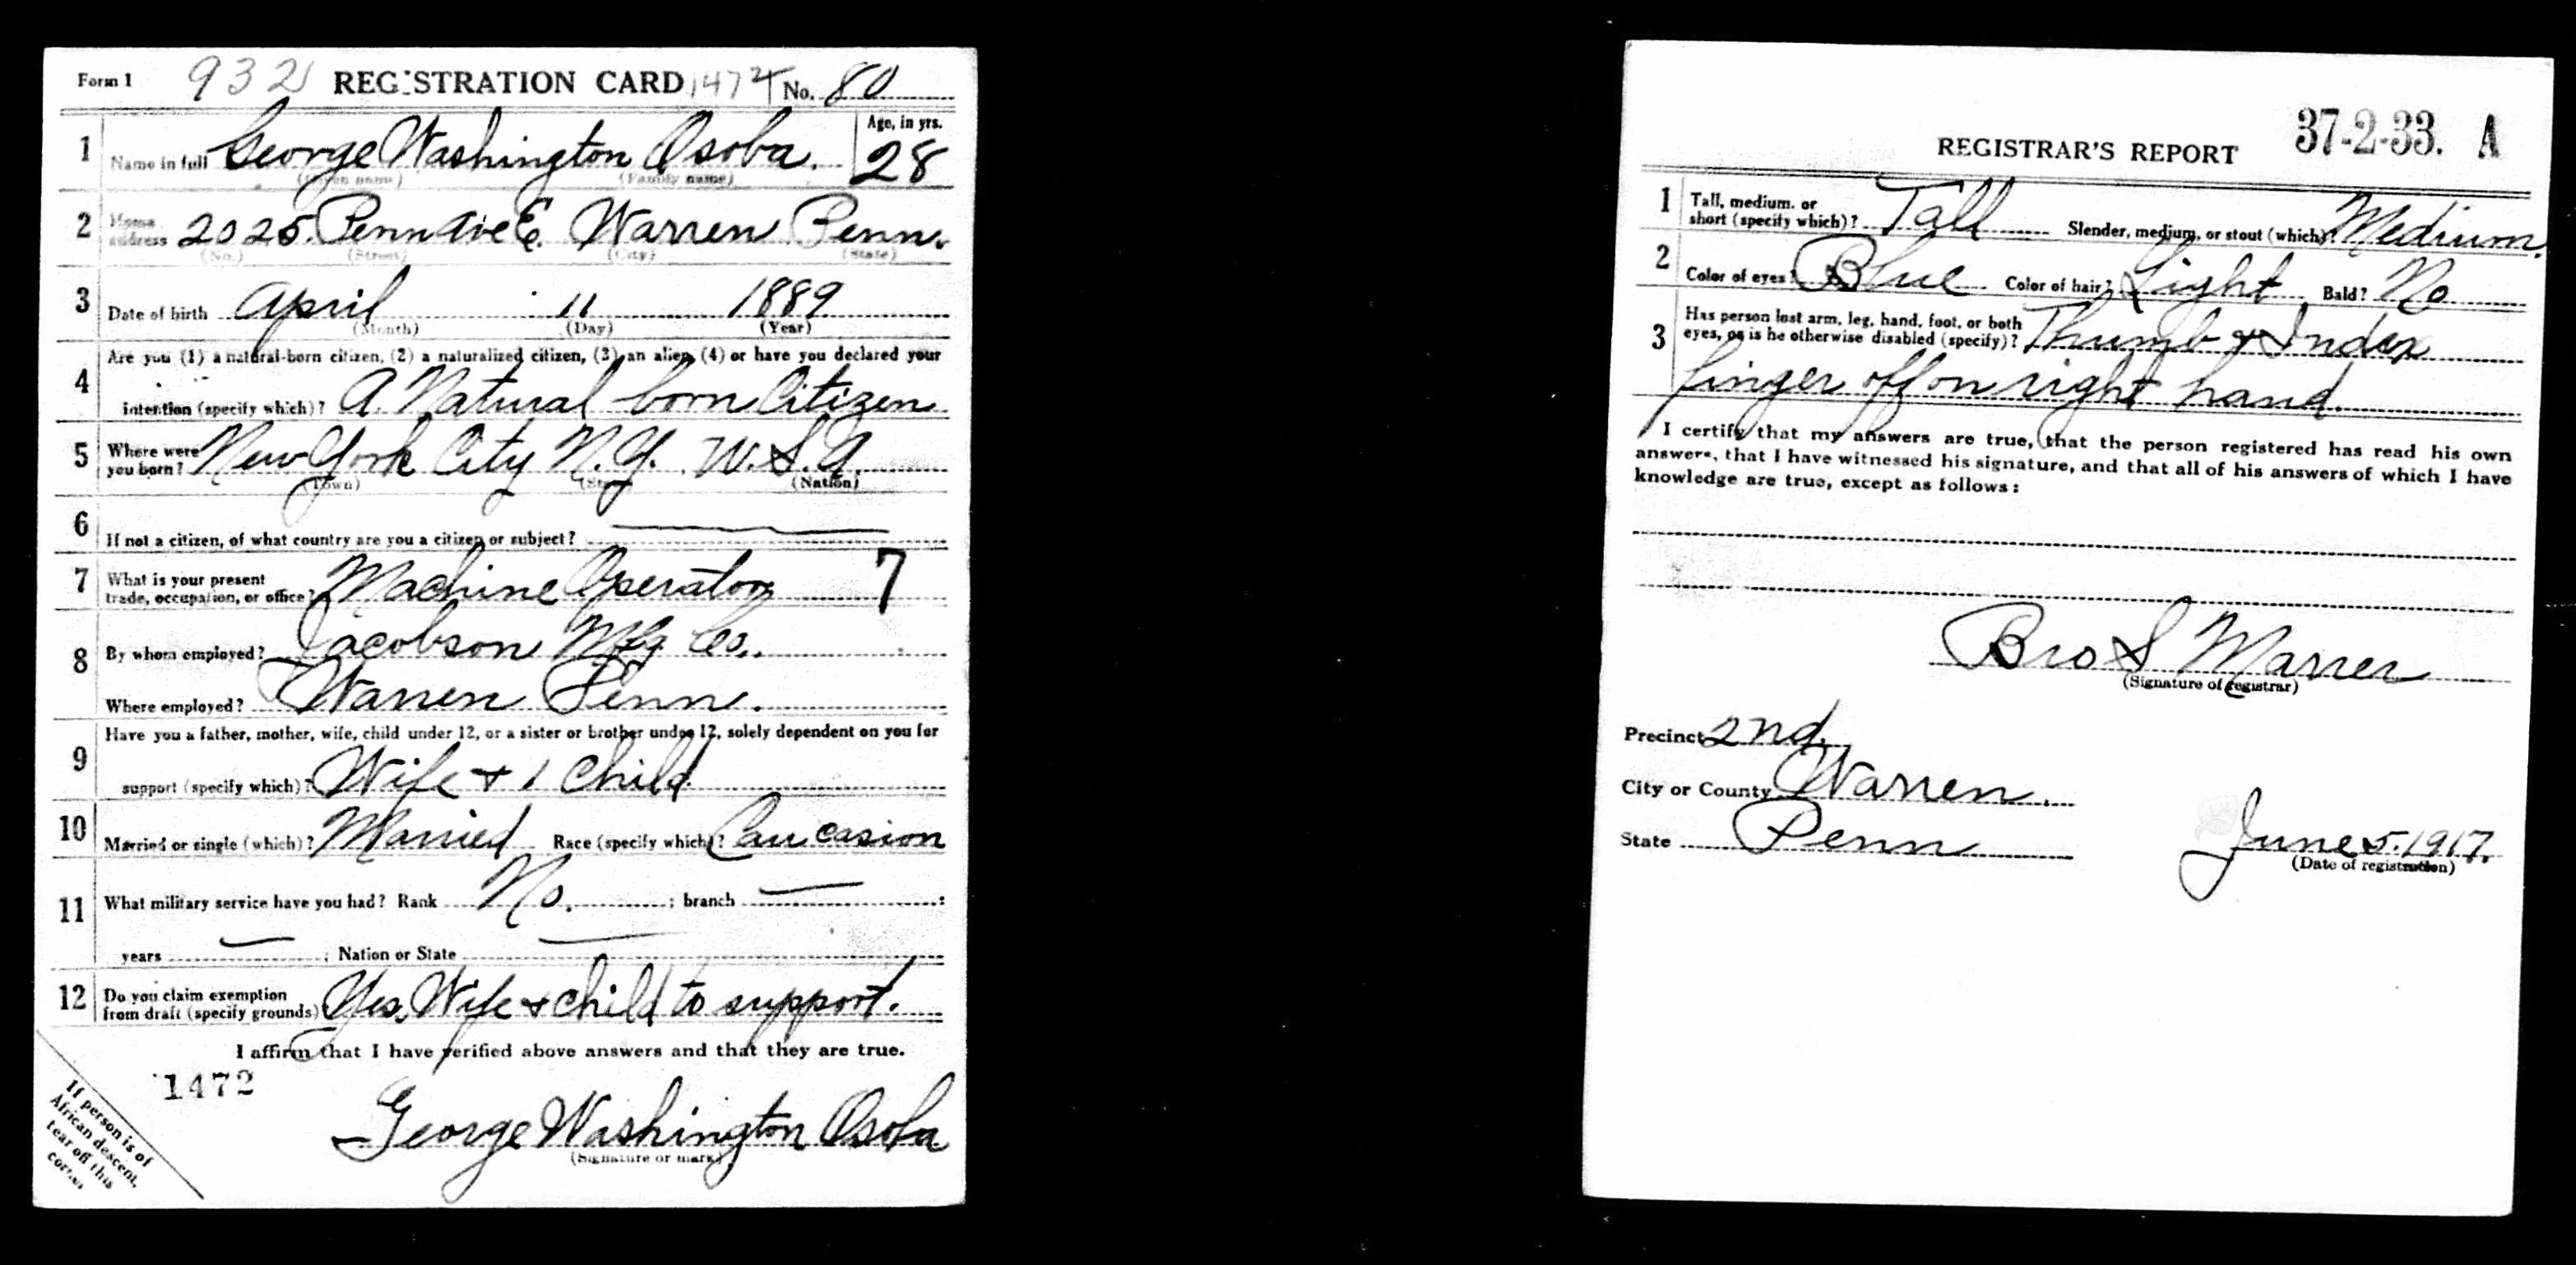 Form 1 932 REGISTRATION CARD 1472 No. 80
1 Name in full George Washington Osoba. Age, in yrs. 28
(Given name) (Family name)
2 Home address 2025 Penn Ave E. Warren Penn.
(No.) (Street) (City) (State)
3 Date of birth April 11 1889
(Month) (Day) (Year)
4 Are you (1) a natural-born citizen, (2) a naturalized citizen, (3) an alien, (4) or have you declared your
intention (specify which)? A Natural born Citizen
5 Where were you born? New York City N.Y. U.S.A.
(Town) (State) (Nation)
6 If not a citizen, of what country are you a citizen or subject?
7 What is your present trade, occupation, or office? Machine Operator 7
8 By whom employed? Jacobson Mfg Co.
Where employed? Warren Penn.
9 Have you a father, mother, wife, child under 12, or a sister or brother under 12, solely dependent on you for
support (specify which)? Wife + 1 Child
10 Married or single (which)? Married Race (specify which)? Caucasion
11 What military service have you had? Rank No. ; branch ;
years ; Nation or State
12 Do you claim exemption from draft (specify grounds)? Yes, Wife + child to support.
I affirm that I have verified above answers and that they are true.
1472
George Washington Osoba
(Signature or mark)
If person is of
African descent,
tear off this
corner
37-2-33. A
REGISTRAR'S REPORT
1 Tall, medium, or short (specify which)? Tall Slender, medium, or stout (which)? Medium.
2 Color of eyes? Blue Color of hair? Light Bald? No
3 Has person lost arm, leg, hand, foot, or both eyes, or is he otherwise disabled (specify)? Thumb & Index
finger off on right hand.
I certify that my answers are true, that the person registered has read his own
answers, that I have witnessed his signature, and that all of his answers of which I have
knowledge are true, except as follows:
(Signature of registrar)
Precinct 2nd.
City or County Warren.
State Penn
June 5. 1917.
(Date of registration)